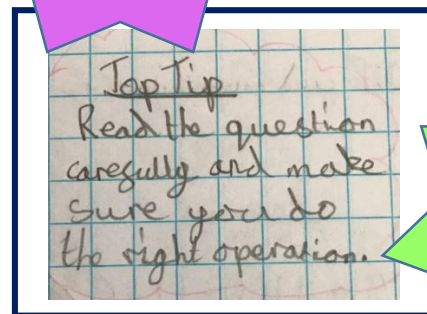 Top Tip
Read the question
carefully and make
sure you do
the right operation.